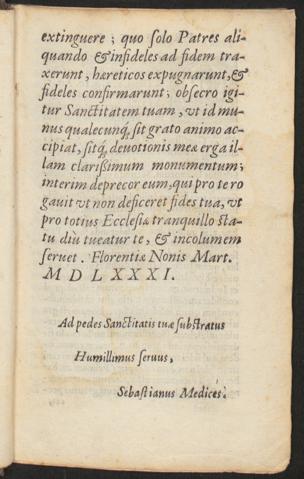 extinguere ; quo ſolo Patres ali-
quando & infideles ad fidem tra-
xerunt, hæreticos expugnarunt, &
fideles confirmarunt; obſecro igi-
tur Sanctitatem tuam, vt id mu-
nus qualecunq́, ſit grato animo ac-
cipiat, ſitq́, deuotionis meæ erga il-
lam clariſſimum monumentum;
interim deprecor eum, qui pro te ro
gauit vt non deficeret fides tua, vt
pro totius Eccleſiæ tranquillo ſta-
tu diù tueatur te, & incolumem
ſeruet. Florentiæ Nonis Mart.
M D L X X X I.
Ad pedes Sanctitatis tuæ ſubſtratus
Humillimus ſeruus,
Sebaſtianus Medices.